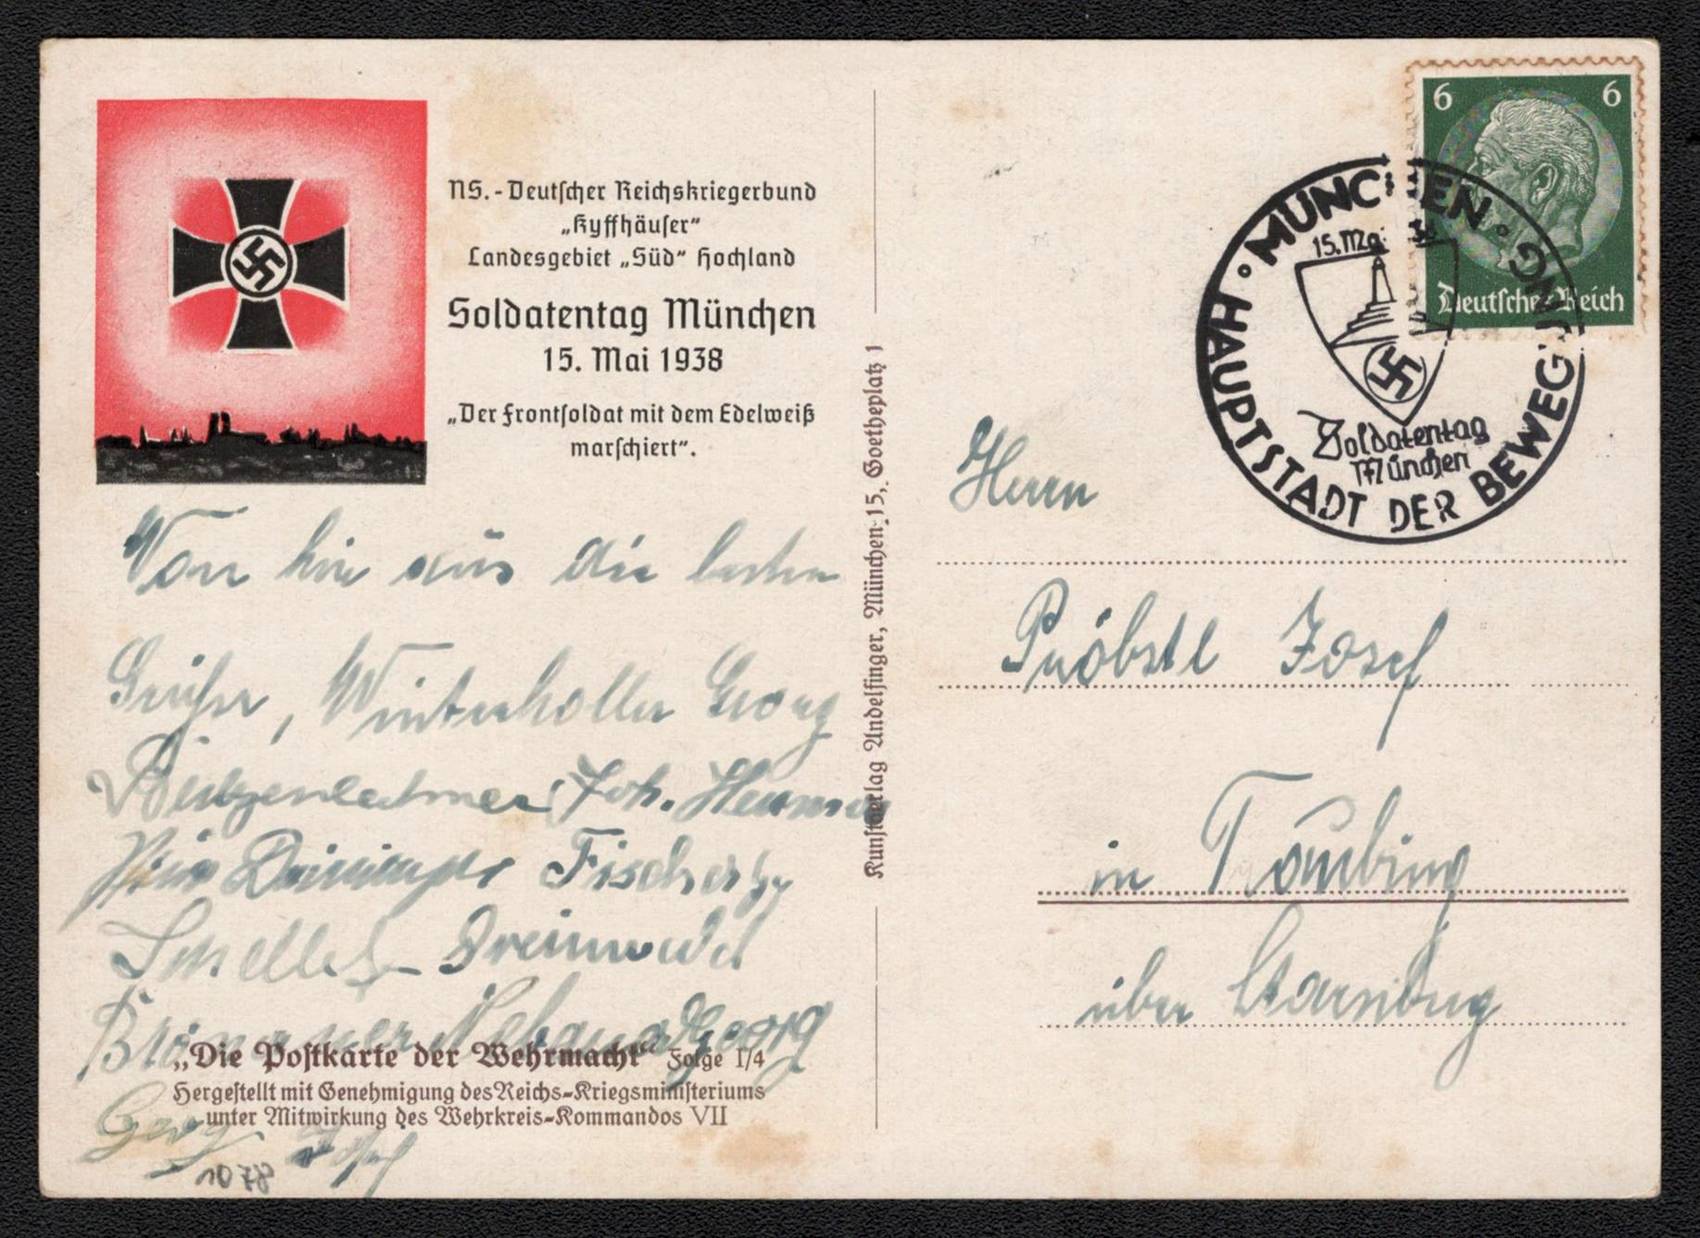 NS.-Deutscher Reichskriegerbund
„Kyffhäuser“
Landesgebiet „Süd“ Hochland
Soldatentag München
15. Mai 1938
„Der Frontsoldat mit dem Edelweiß
marschiert“.
Von hier aus die besten
Grüße, Winterholler Georg
Joh.
Fischer
Georg
Georg Josef
„Die Postkarte der Wehrmacht“ Folge I/4
Hergestellt mit Genehmigung des Reichs-Kriegsministeriums
unter Mitwirkung des Wehrkreis-Kommandos VII
Kunstverlag Andelfinger, München 15, Goetheplatz 1
6 6
Deutsches Reich
MÜNCHEN
HAUPTSTADT DER BEWEGUNG
15. Mai
Soldatentag
München
Herrn
Pröbstl Josef
in
über Starnberg